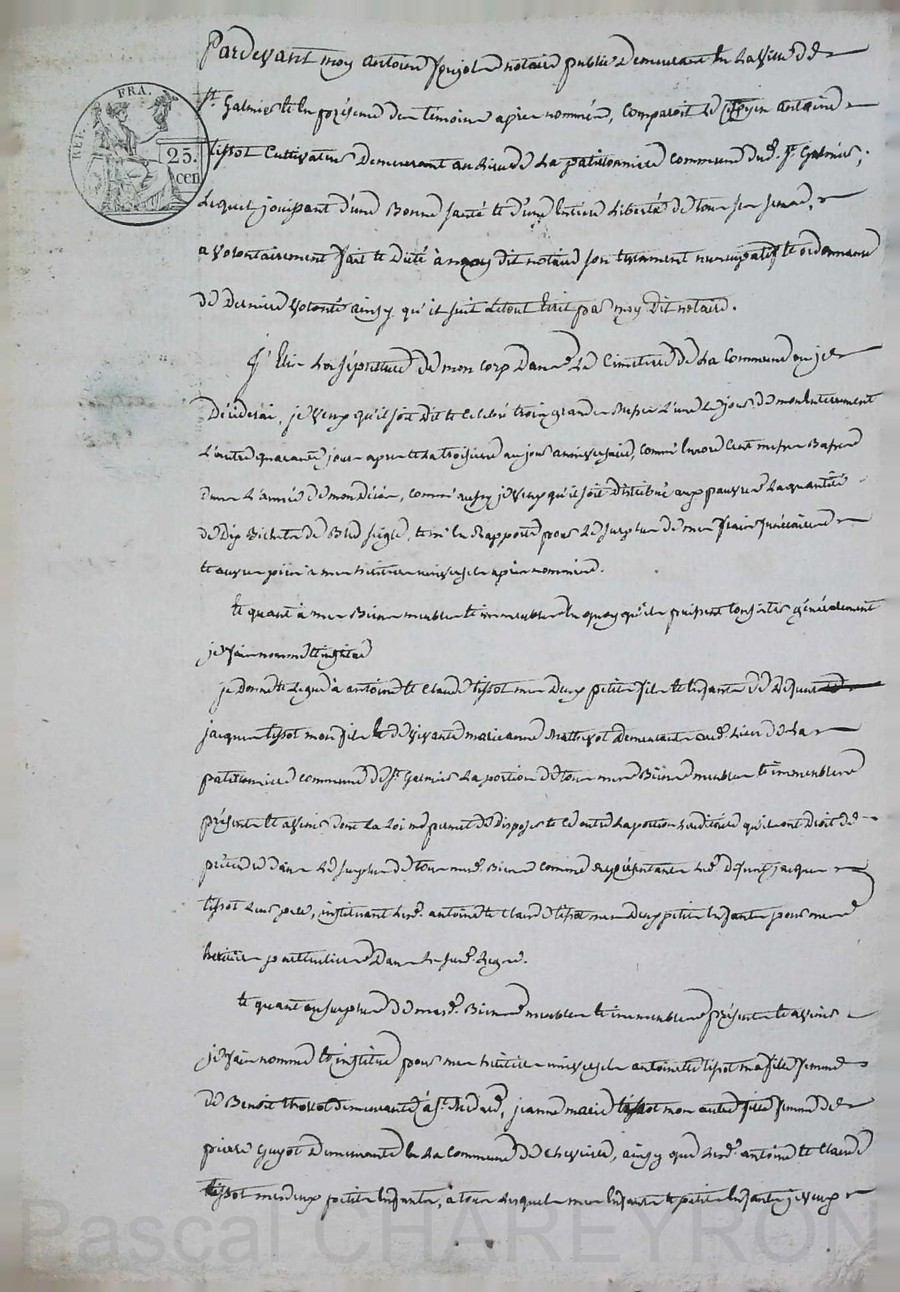 Pardevant moy antoine pujol notaire public demeurant en la ville de
REP. FRA.
25.
cen
St. Galmier et en présence des témoins apres nommés, comparoit le citoyen antoine
tissot Cultivateur demeurant au lieu de La patissonnière commune dud. St. Galmier,
Lequel jouissant d'une Bonne santé et d'une entiere Liberté de tous ses sens,
a volontairement fait et dicté à moy dit notaire son testament nuncupatif et ordonnance
de derniere volonté ainsy qu'il suit le tout Ecrit par moy dit notaire.
J' Elis la sépulture de mon corp dans Le Cimetiere de La Commune ou je
décéderai, je veux qu'il soit dit et Celebré trois grandes Messes L'une Le jour de mon Enterrement
L'autre quarante jours apres et La troisieme au jour anniversaire, comme Encore Cent messes Basses
dans L'année de mon décés, comme aussy je veux qu'il soit distribué aux pauvres La quantité
de dix Bichets de Bled seigle, et m'en Rapporte pour Le surplus de mes frais funéraires
et œuvres pies à mes héritiers universels apres nommés.
Et quant à mes Biens meubles et immeubles En quoy qu'ils puissent Consister généralement
je fais nomme et institue
je donne et Legue à antoine et Claude tissot mes deux petits fils et Enfants de défunt
jacques tissot mon fils Et de vivante marieanne Mathevot demeurants aud. Lieu de La
patissonnière commune de St. Galmier La portion de tous mes Biens meubles et immeubles
présents et avenir dont La Loi me permet de disposer et Ce outre La portion héréditaire qu'ils ont droit de
prétendre dans Le surplus de tous mesd. Biens comme représentants Led. défunt jacques
tissot Leur pere, instituant Lesd. antoine et Claude tissot mes deux petits Enfants pour mes
héritiers particuliers dans Le susd. Legs.
Et quant au surplus de mesd. Biens meubles et immeubles présents et avenir
je fais nomme et institue pour mes héritiers universels antoinette tissot ma fille femme
de Benoit thollot demeurante à St. Medard, jeanne marie tissot mon autre fille femme de
pierre Guyot demeurante En La Commune de Chevrière, ainsy que Lesd. antoine et Claude
tissot mes deux petits Enfants, à tous Lesquels mes Enfants et petits Enfants je veux
Pascal CHAREYRON